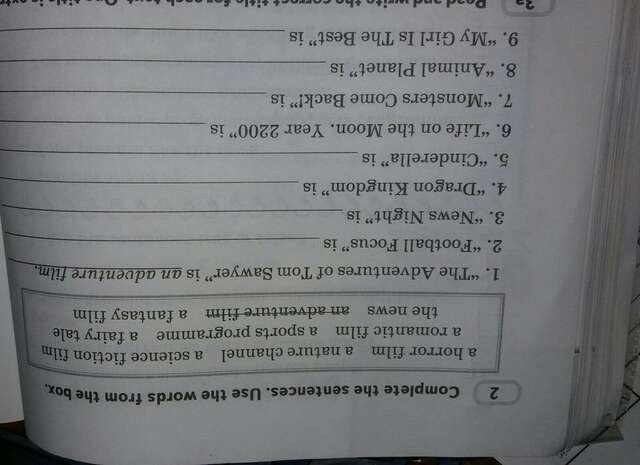 2 Complete the sentences. Use the words from the box.
a horror film a nature channel a science fiction film
a romantic film a sports programme a fairy tale
the news an adventure film a fantasy film
1. “The Adventures of Tom Sawyer” is an adventure film.
2. “Football Focus” is
3. “News Night” is
4. “Dragon Kingdom” is
5. “Cinderella” is
6. “Life on the Moon. Year 2200” is
7. “Monsters Come Back!” is
8. “Animal Planet” is
9. “My Girl Is The Best” is
3a Read and write the correct title for each text. One title is extra